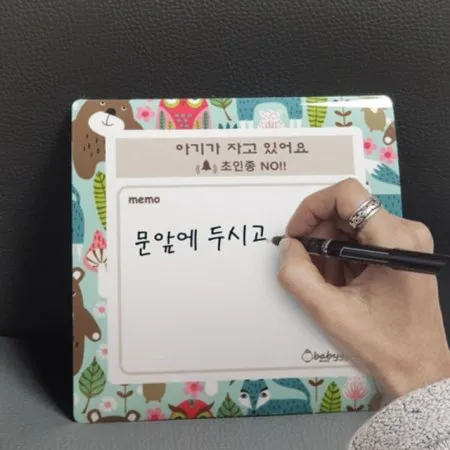 아기가 자고 있어요
초인종 NO!!
memo
문앞에 두시고